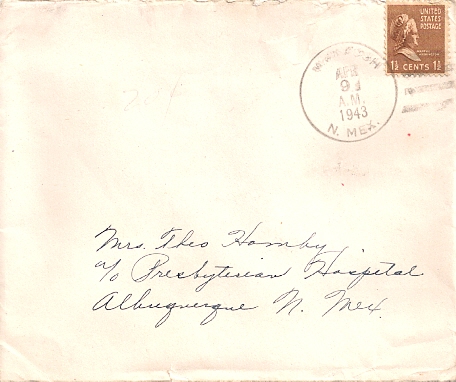 UNITED
STATES
POSTAGE
1½ CENTS 1½
APR
9
A.M.
1943
N. MEX.
Mrs. Theo Hornby
c/o Presbyterian Hospital
Albuquerque N. Mex.